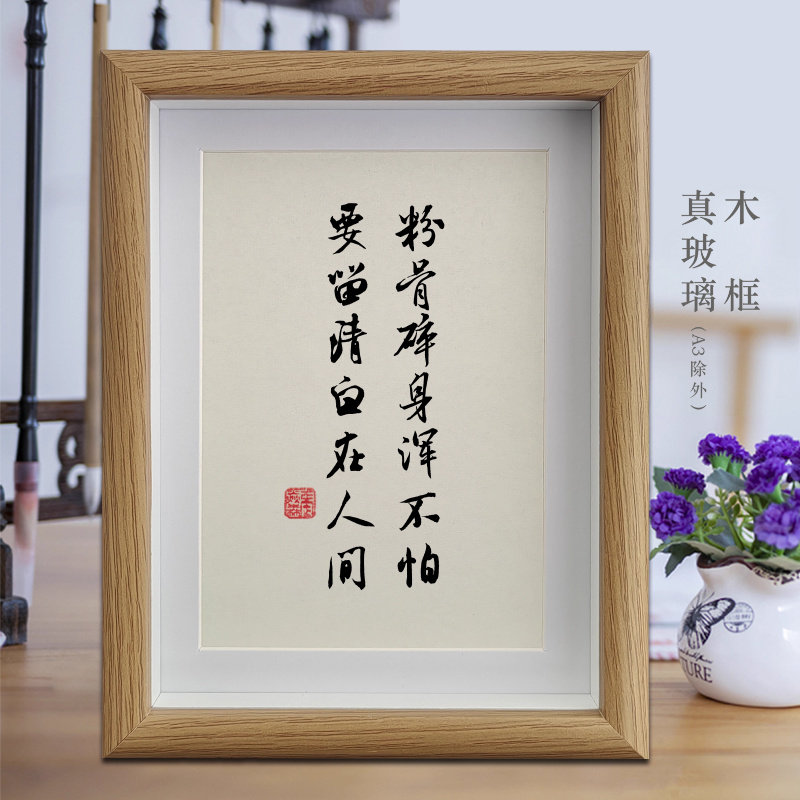 粉骨碎身浑不怕
要留清白在人间
木框
真玻璃(A3除外)